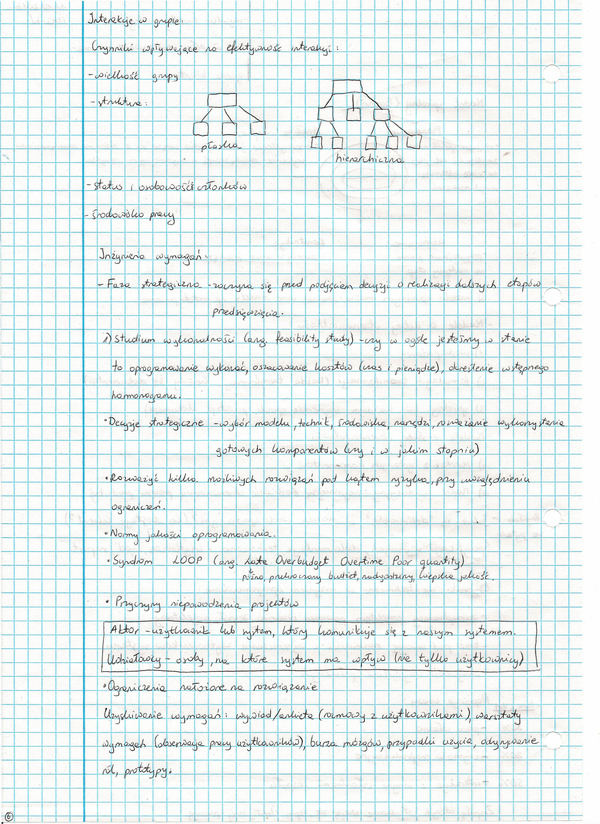 Interakcje w grupie.
Czynniki wpływające na efektywność interakcji:
- wielkość grupy
- struktura:
płaska
hierarchiczna
- status i osobowość członków
- środowisko pracy
Inżynieria wymagań.
- Faza strategiczna - zaczyna się przed podjęciem decyzji o realizacji dalszych etapów
przedsięwzięcia.
1) Studium wykonalności (ang. feasibility study) - czy w ogóle jesteśmy w stanie
to oprogramowanie wykonać, oszacowanie kosztów (czas i pieniądze), określenie wstępnego
harmonogramu.
• Decyzje strategiczne - wybór modelu, technik, środowiska, narzędzi, rozważanie wykorzystania
gotowych komponentów (czy i w jakim stopniu)
• Rozważyć kilka możliwych rozwiązań pod kątem ryzyka, przy uwzględnieniu
ograniczeń.
• Normy jakości oprogramowania.
• Syndrom LOOP (ang. Late Overbudget Overtime Poor quantity)
późno, przekroczony budżet, nadgodziny, kiepska jakość.
• Przyczyny niepowodzenia projektów
Aktor - użytkownik lub system, który komunikuje się z naszym systemem.
Udziałowcy - osoby, na które system ma wpływ (nie tylko użytkownicy)
• Ograniczenia nałożone na rozwiązanie
Uzyskiwanie wymagań: wywiad/ankieta (rozmowy z użytkownikami), warsztaty
wymagań (obserwacja pracy użytkowników), burza mózgów, przypadki użycia, odgrywanie
ról, prototypy.
6